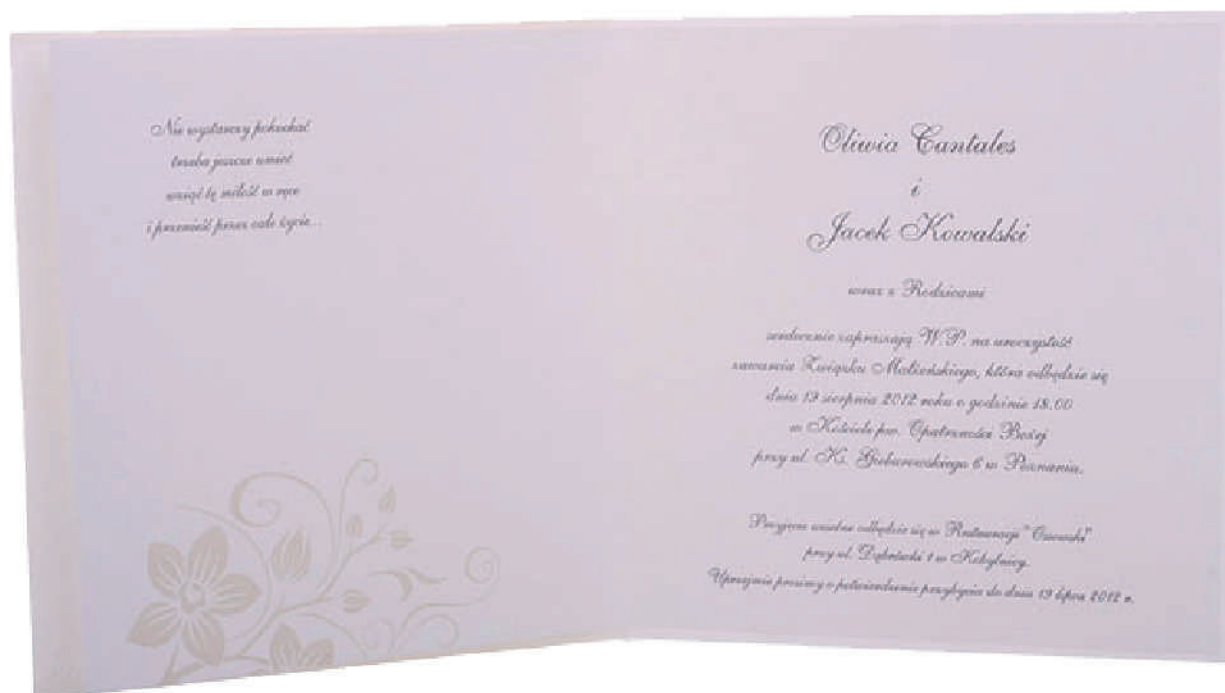 Nie wystarczy pokochać
trzeba jeszcze umieć
wziąć tę miłość w ręce
i przenieść przez całe życie...
Oliwia Cantales
i
Jacek Kowalski
wraz z Rodzicami
serdecznie zapraszają W.P. na uroczystość
zawarcia Związku Małżeńskiego, która odbędzie się
dnia 19 sierpnia 2012 roku o godzinie 18.00
w Kościele pw. Opatrzności Bożej
przy ul. Ks. Gieburowskiego 6 w Poznaniu.
Przyjęcie weselne odbędzie się w Restauracji "
przy ul. Dąbrówki 1 w Kobylnicy.
Uprzejmie prosimy o potwierdzenie przybycia do dnia 19 lipca 2012 r.